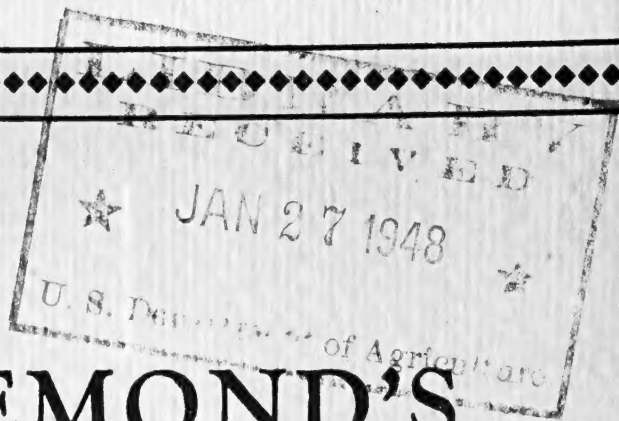 LIBRARY
RECEIVED
★ JAN 27 1948 ★
U. S. Department of Agriculture
EMOND'S